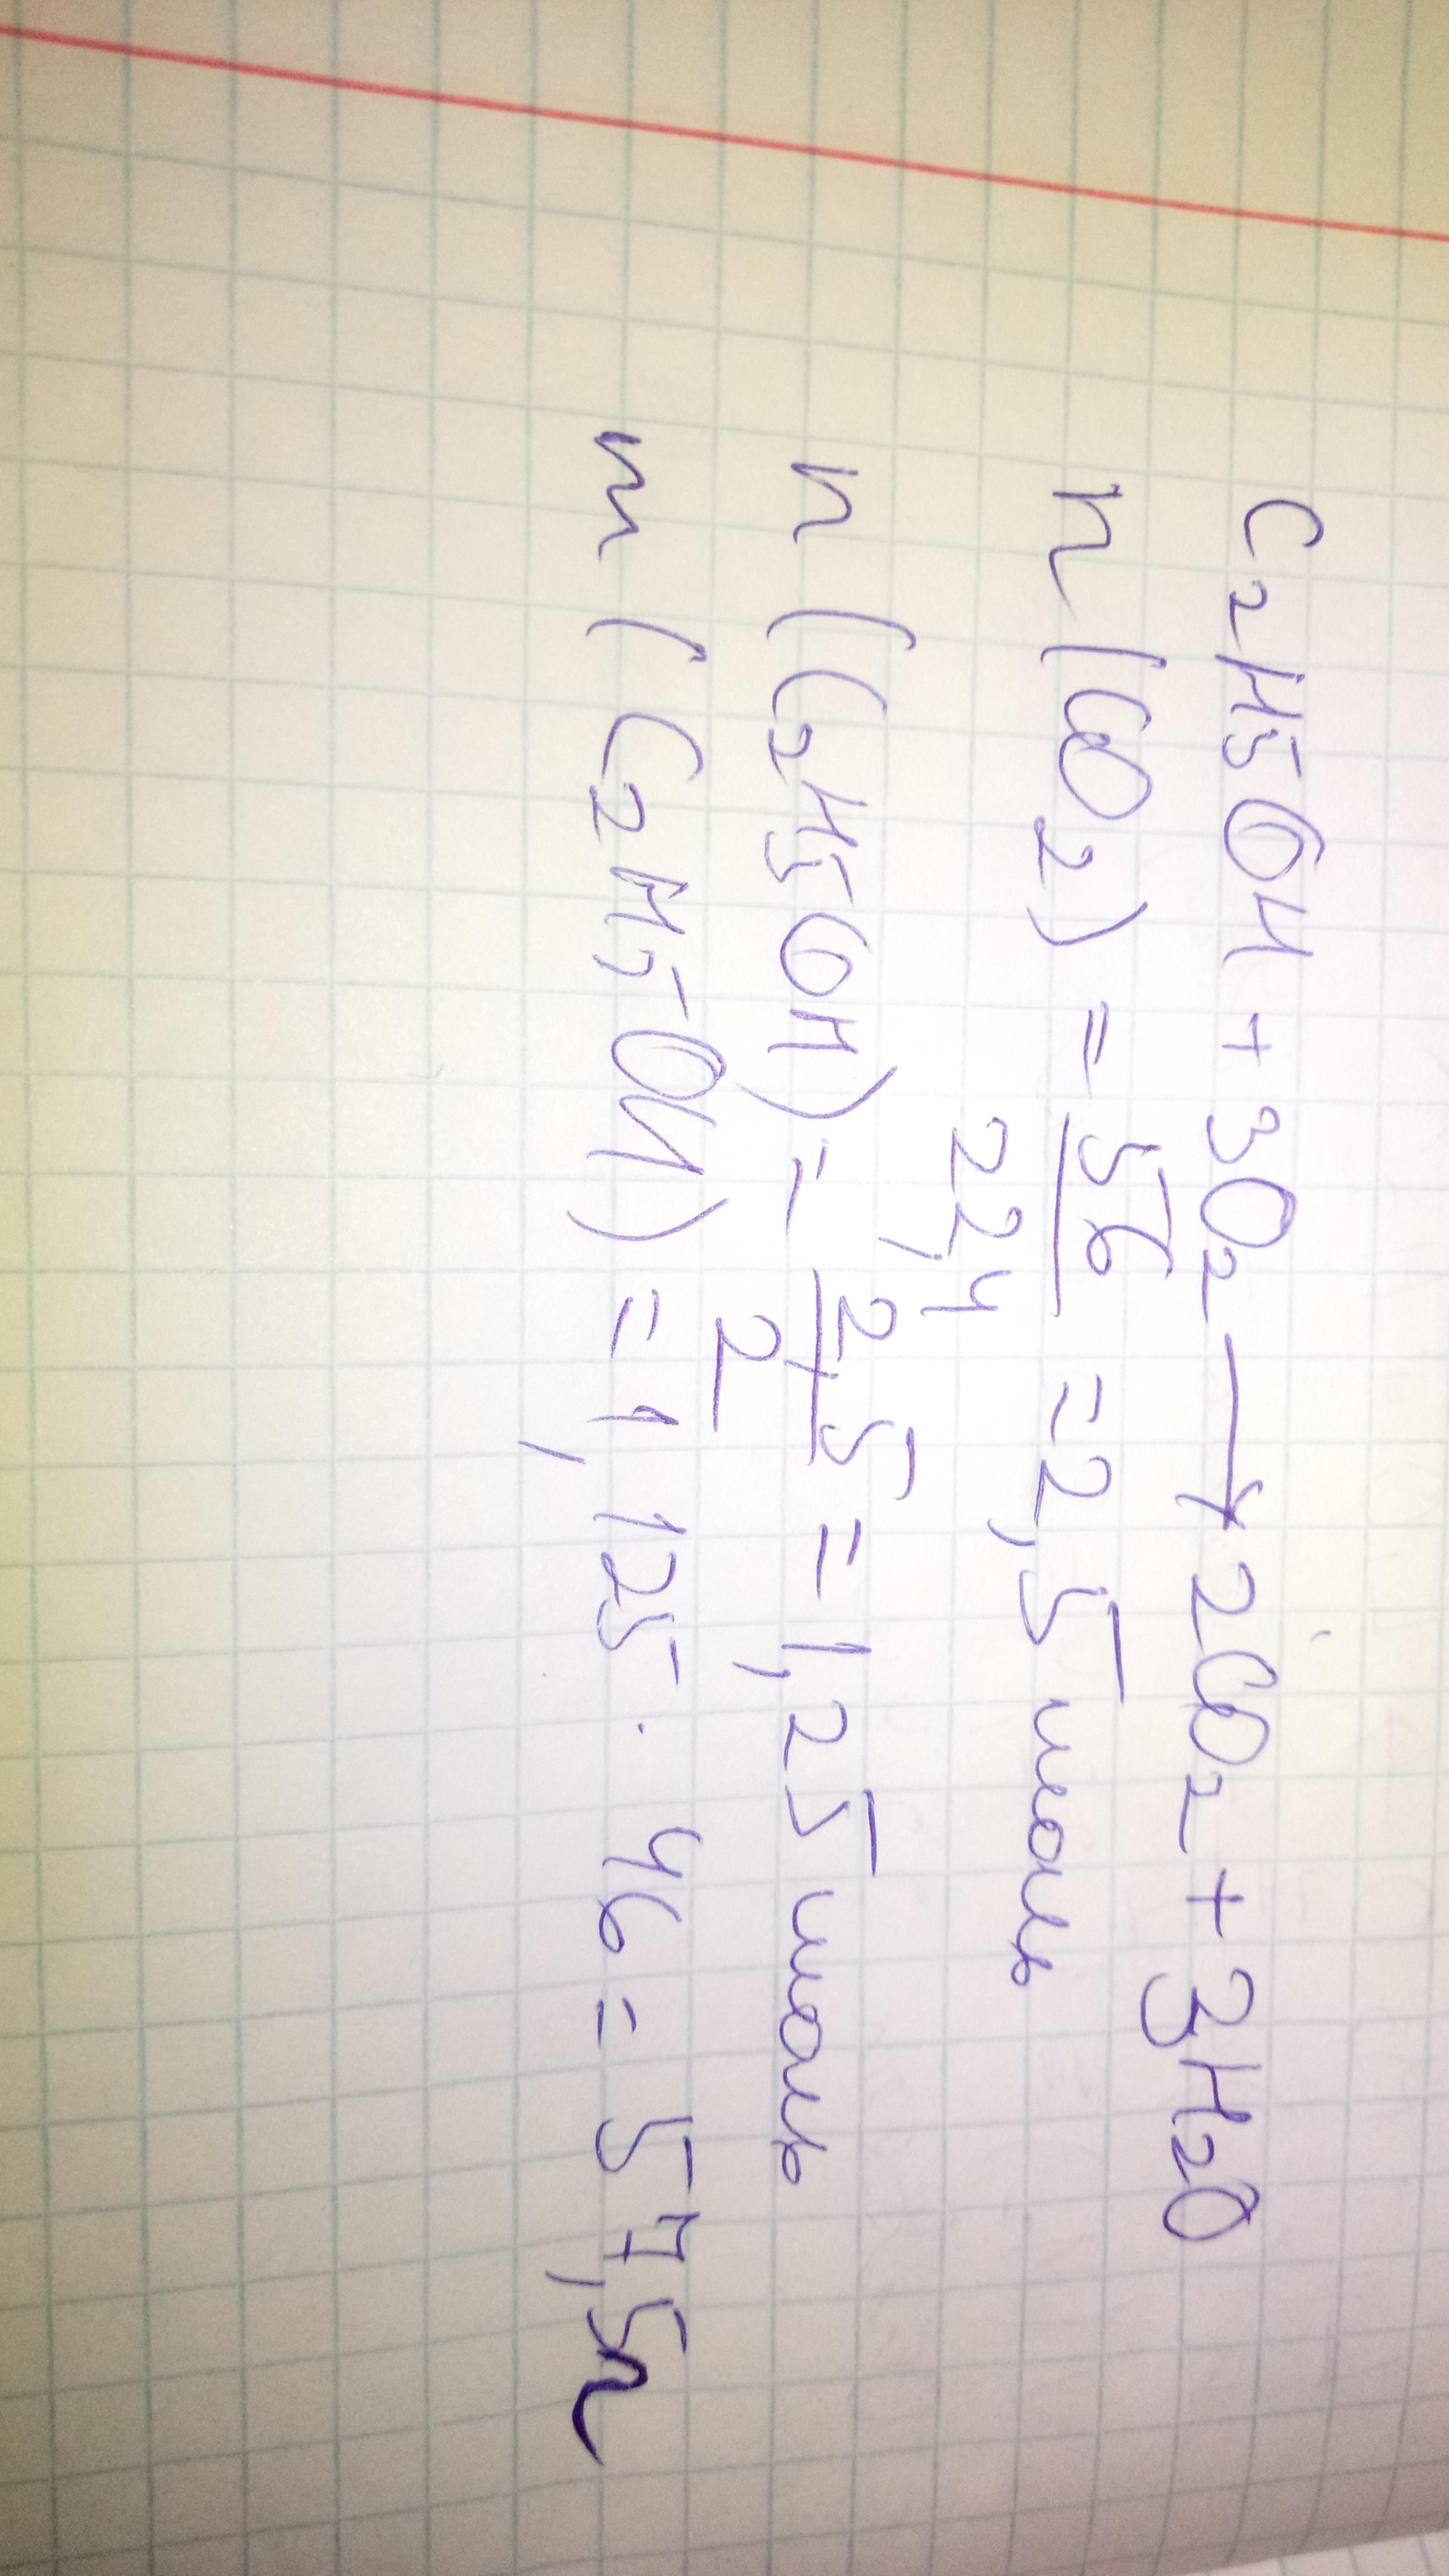 C2H5OH + 3O2 → 2CO2 + 3H2O
n(CO2) = 56/22,4 = 2,5 моль
n(C2H5OH) = 2,5/2 = 1,25 моль
m(C2H5OH) = 1,125 · 46 = 57,5г